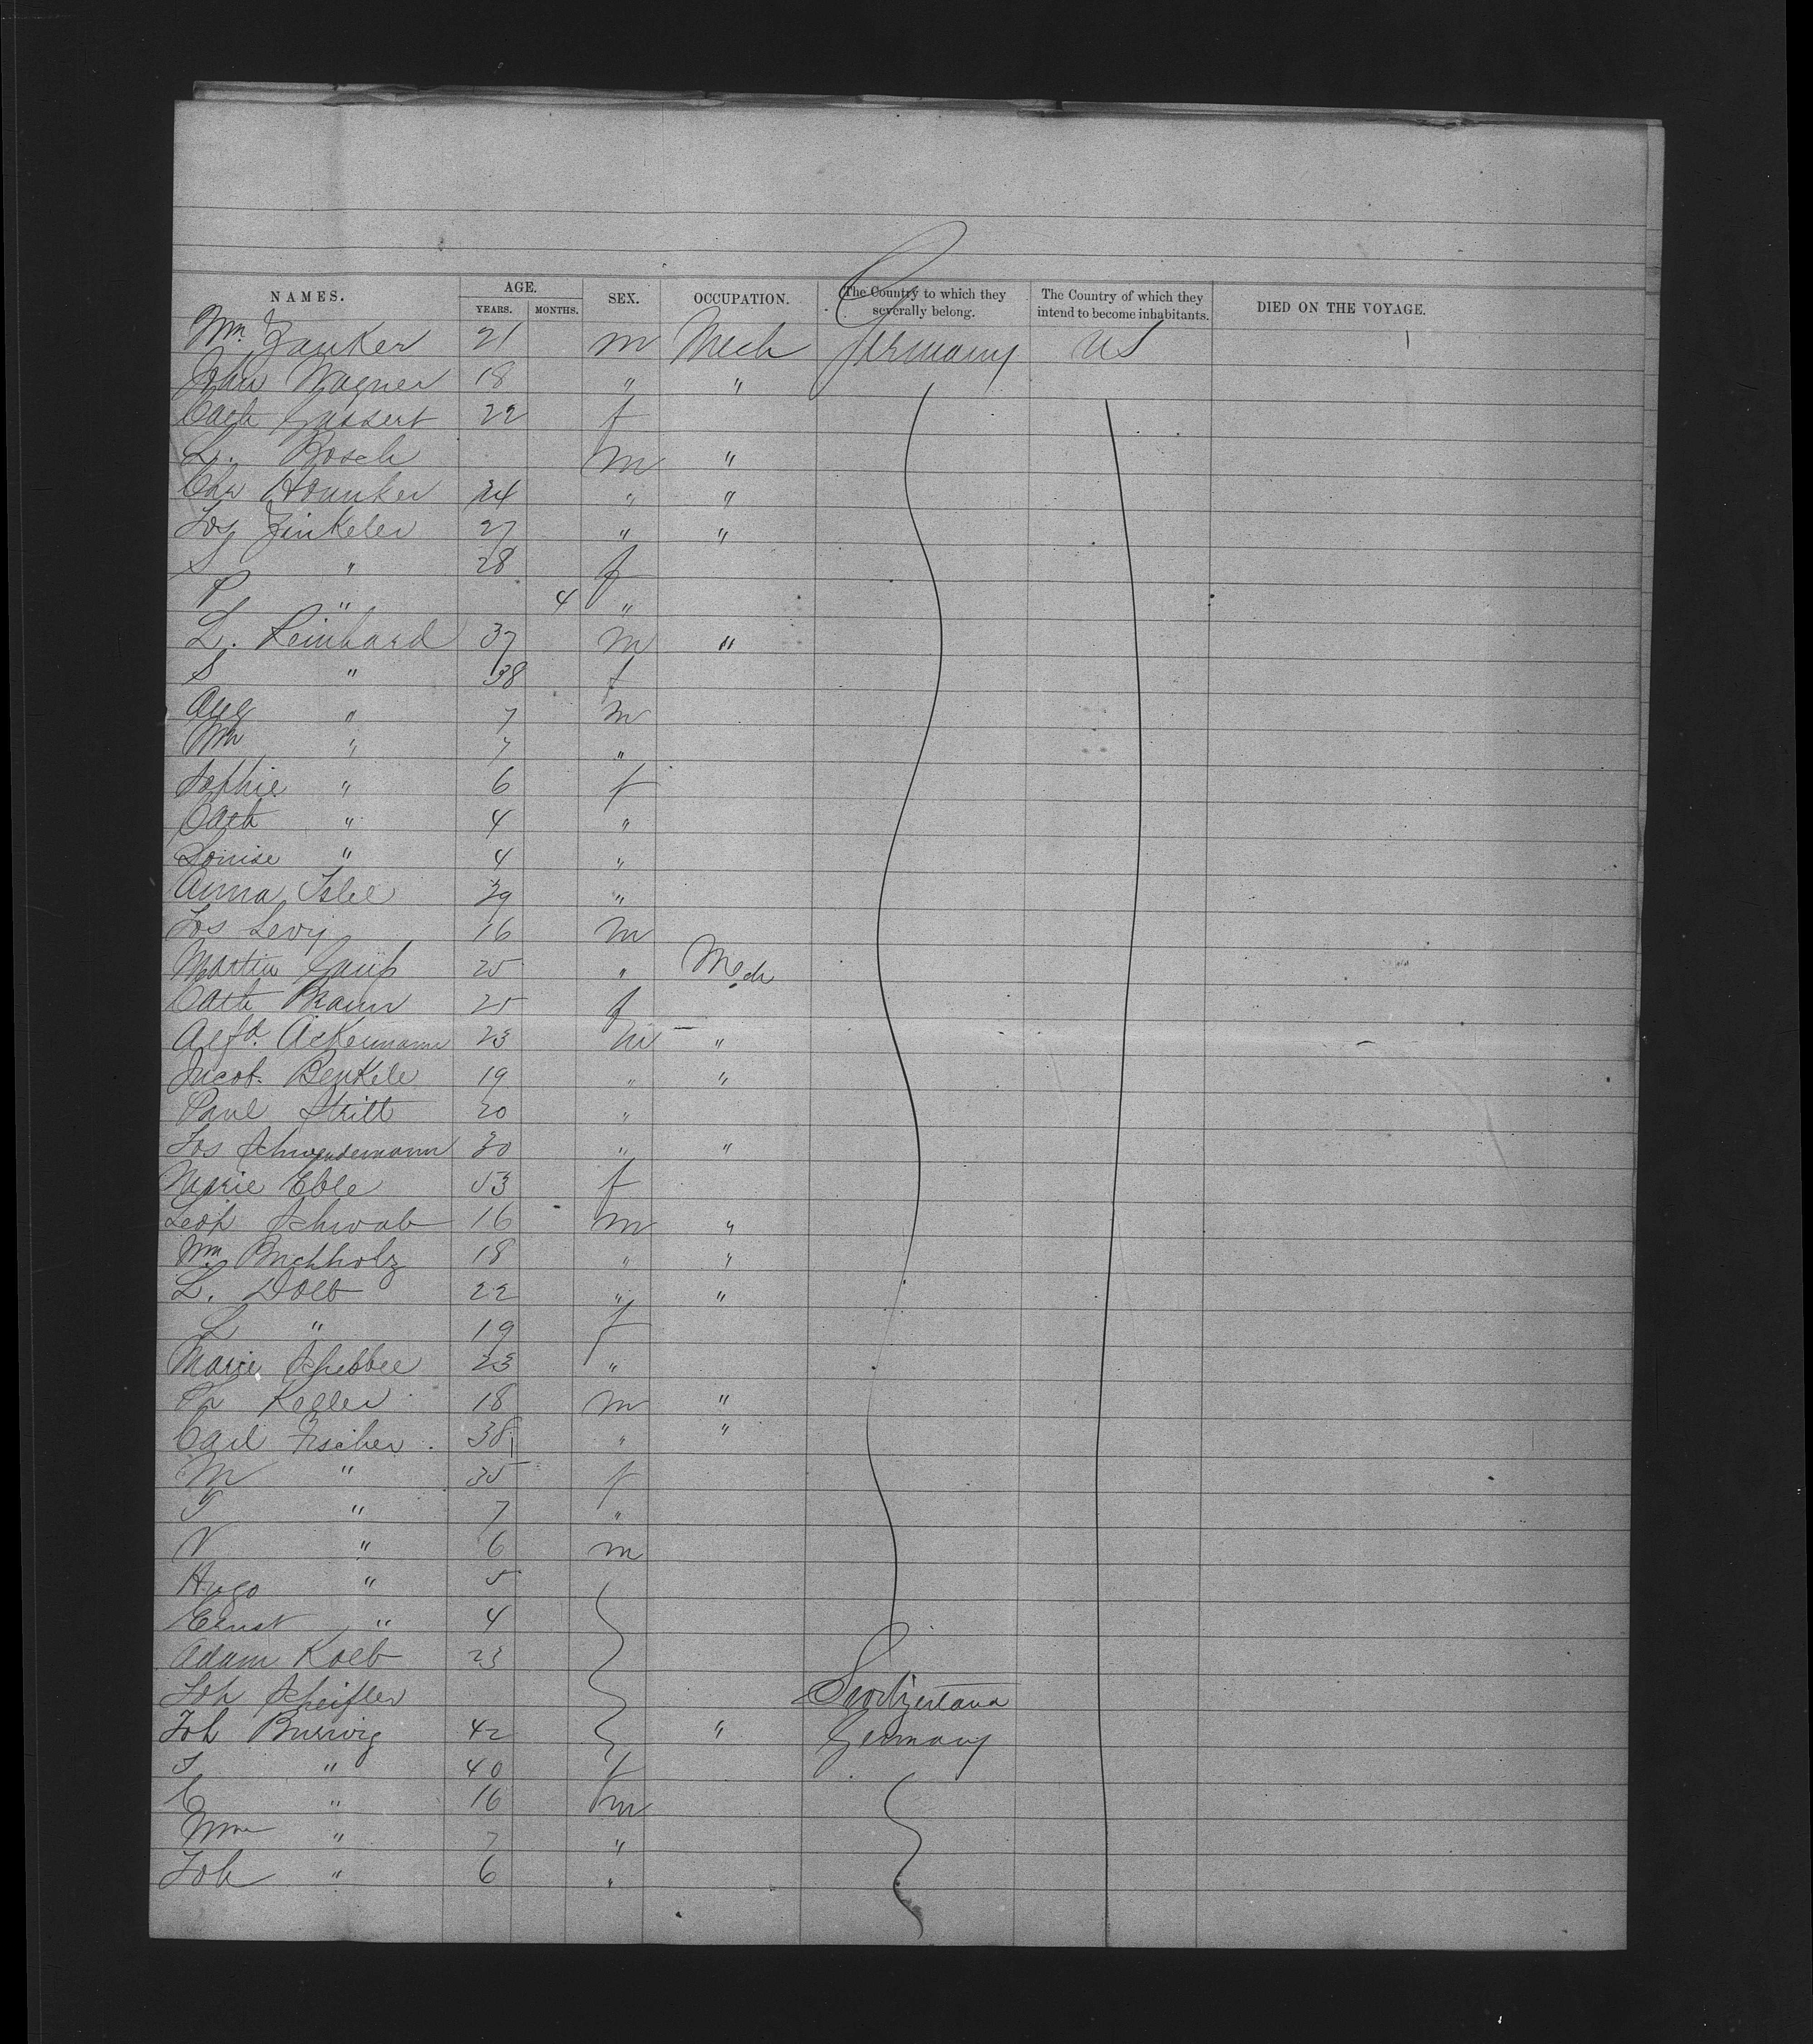 NAMES. AGE. SEX. OCCUPATION. The Country to which they severally belong. The Country of which they intend to become inhabitants. DIED ON THE VOYAGE.
YEARS. MONTHS.
Wm. Zanker 21 m Mech Germany US
John Wagner 18 " "
Cath Gassert 22 f
L. Bosch m "
Chr 24 " "
Jos Zinkeler 27 " "
S " 28 f
P " 4 "
L. Reinhard 37 m "
S " 38 f
Aug " 7 m
Wm " 7 "
Sophie " 6 f
Cath " 4 "
Louise " 4 "
Anna Islel 39 "
Jos Levy 16 m
Martin 25 " Mech
Cath Braun 25 f
Alfd. Ackermann 23 m "
Jacob Benkele 19 " "
Paul Stritt 20 "
Jos Schwendemann 30 " "
Marie Eble 53 f
Leop Schwab 16 m "
Wm. Buchholz 18 " "
L. Dolb 22 " "
L " 19 f
Marie 23 "
Ph Keller 18 m "
Carl Fischer 38 " "
M " 35 f
T " 7 "
V " 6 m
Hugo " 5
Ernst " 4
Adam Kolb 23
Joh Scheifler Switzerland
Joh Burwig 42 " Germany
S " 40 f
C " 16 m
Wm " 7 "
Joh " 6 "